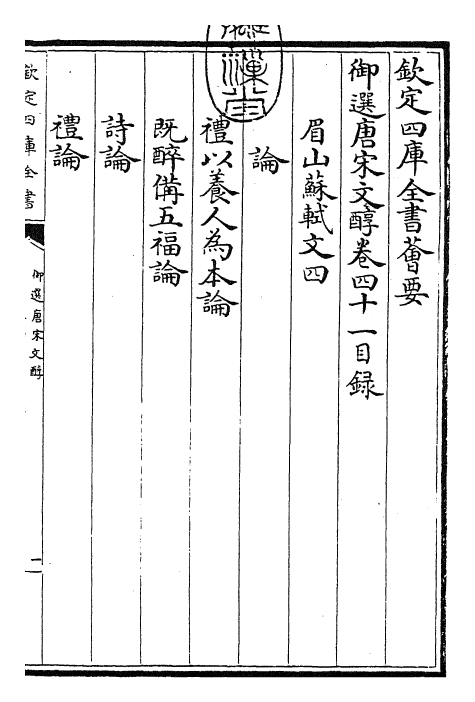 欽定四庫全書薈要
御選唐宋文醇卷四十一目録
眉山蘇軾文四
論
禮以養人為本論
既醉備五福論
詩論
禮論
欽定四庫全書
御選唐宋文醇